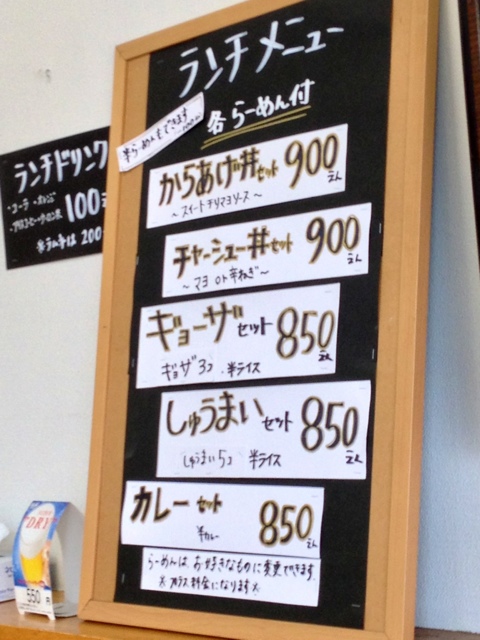 ランチメニュー
各らーめん付
半らーめんもできます
からあげ丼セット 900えん
～スイートチリマヨソース～
チャーシュー丼セット 900えん
～マヨ or 辛ねぎ～
ギョーザセット 850えん
ギョザ3コ 半ライス
しゅうまいセット 850えん
しゅうまい5コ 半ライス
カレーセット 850えん
半カレー
らーめんは、お好きなものに変更できます。
※プラス料金になります※
ランチドリンク
・コーラ・オレンジ 100
・アイスコーヒー・ウーロン茶
※ラムネは200
DRY
550円